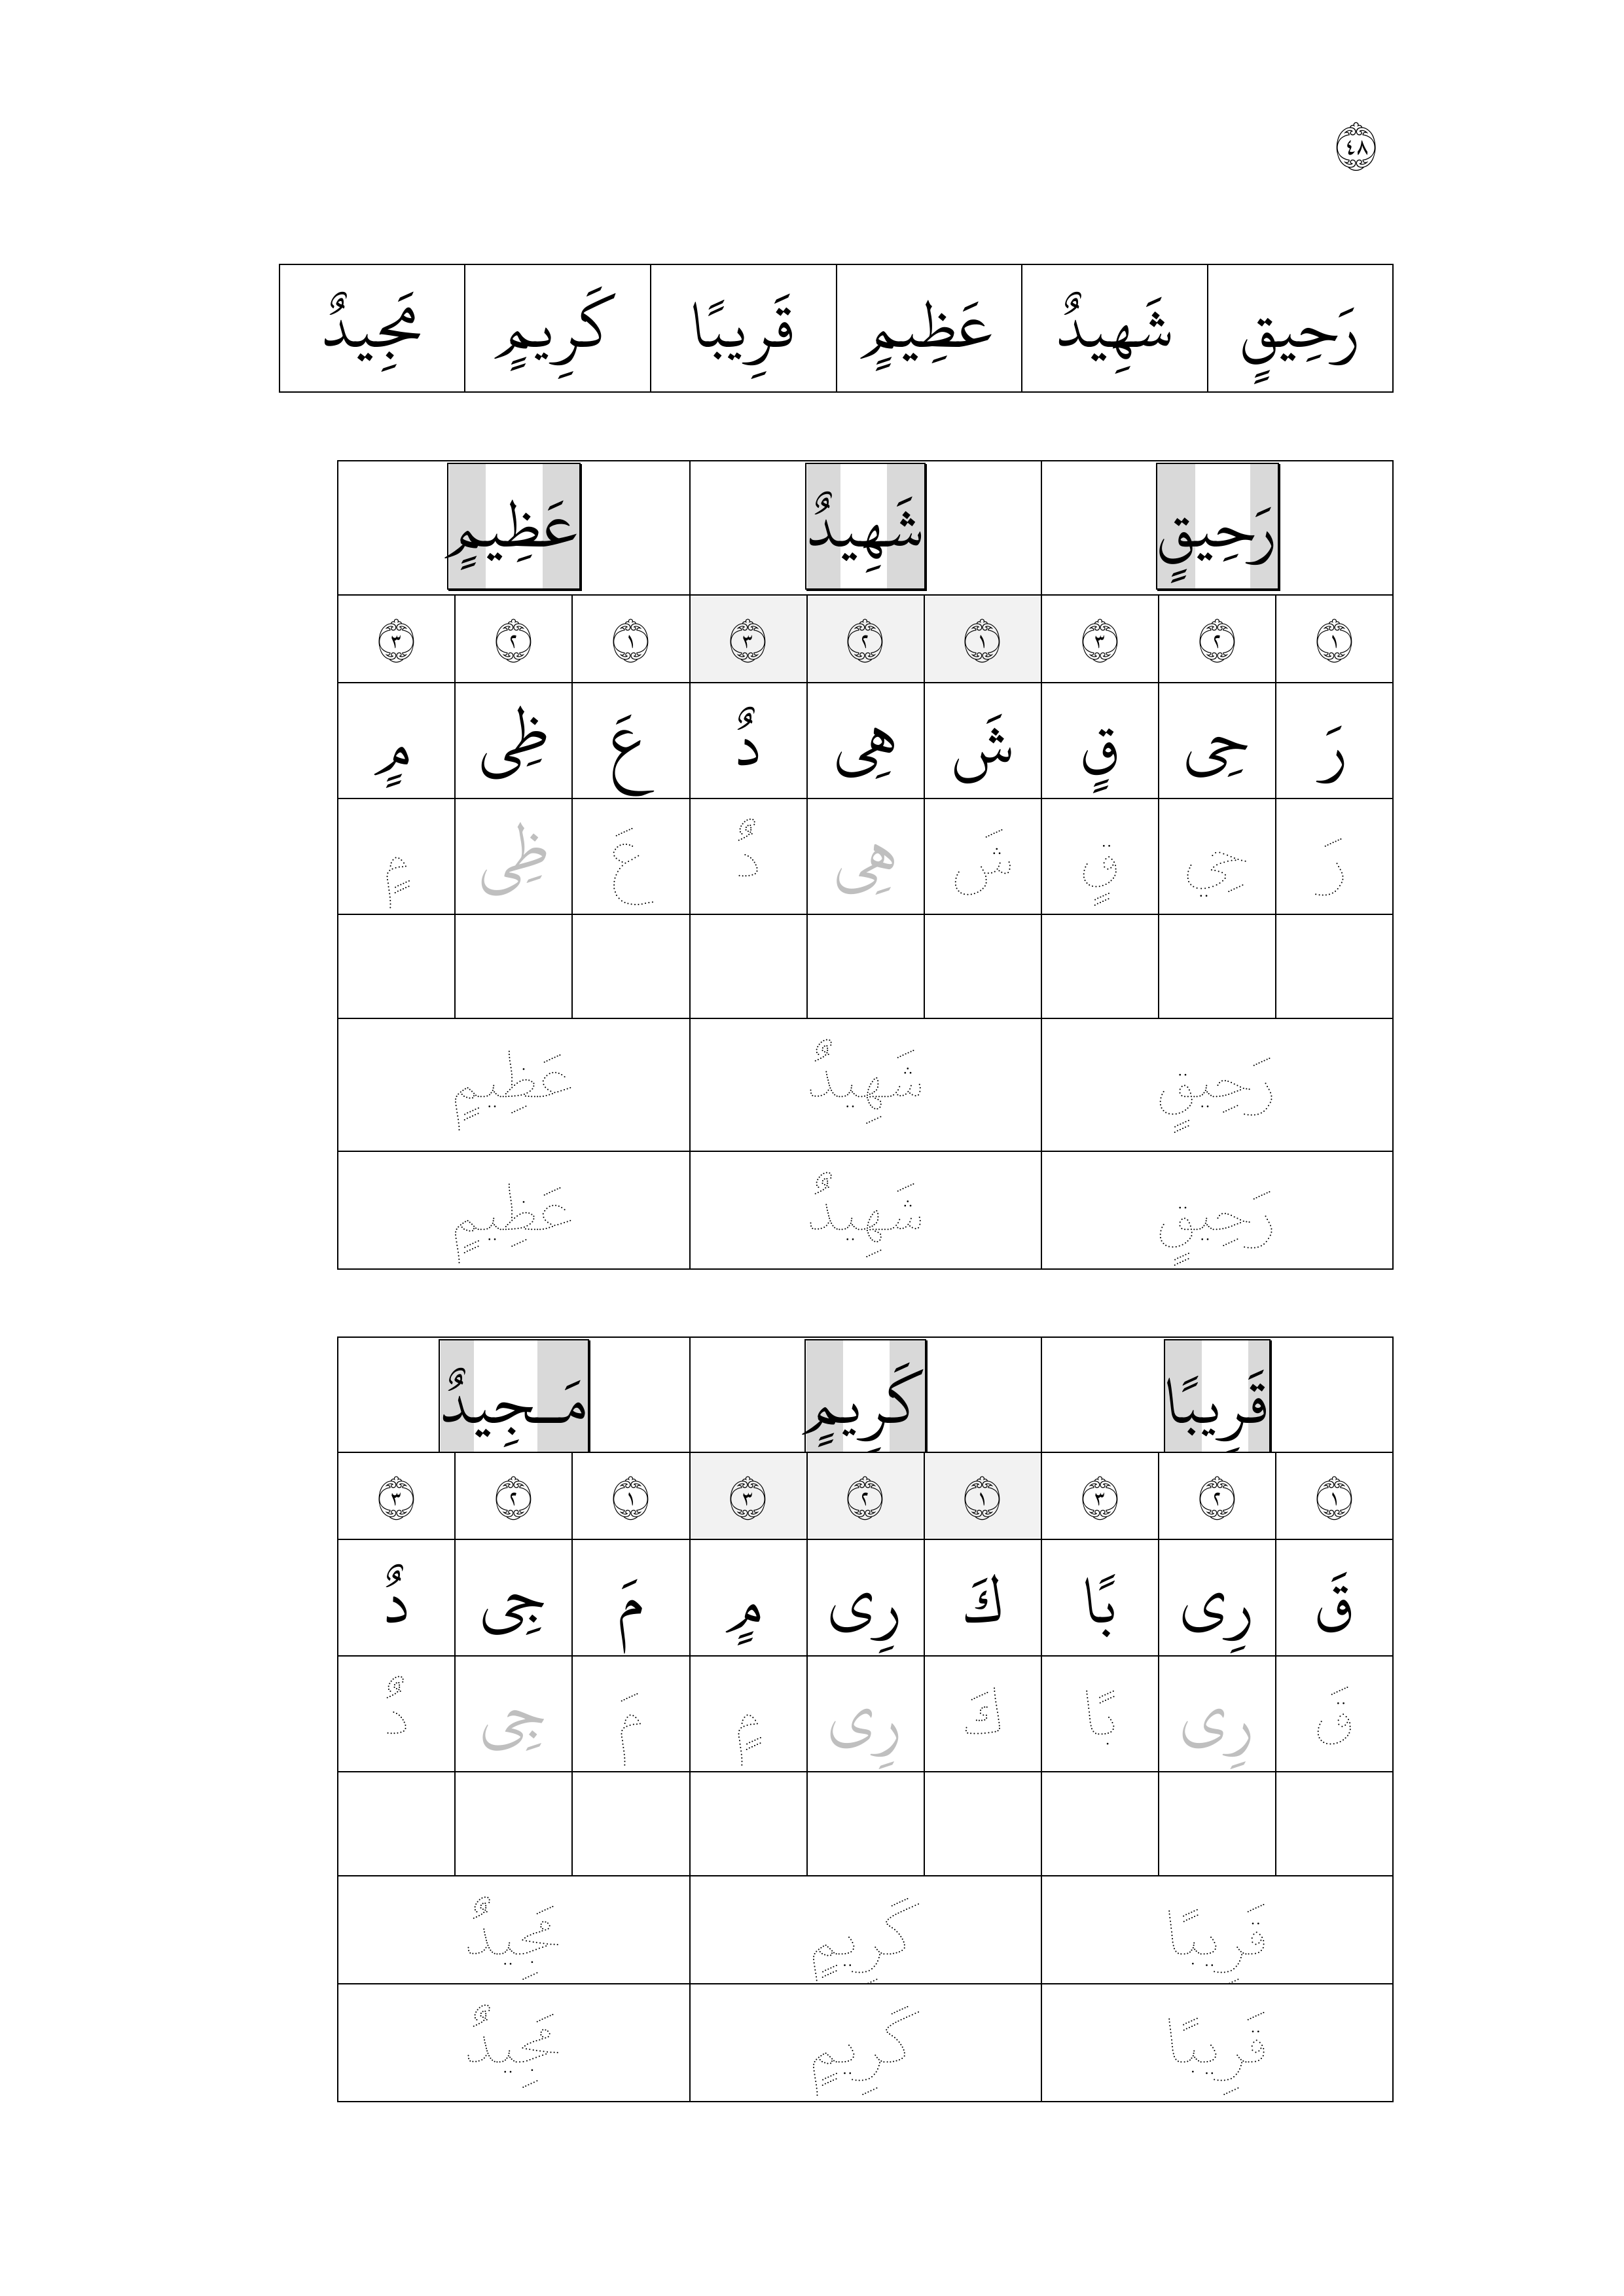 ٤٨
رَحِيقٍ شَهِيدٌ عَظِيمٍ قَرِيبًا كَرِيمٍ مَجِيدٌ
رَحِيقٍ شَهِيدٌ عَظِيمٍ
١ ٢ ٣ ١ ٢ ٣ ١ ٢ ٣
رَ حِى قٍ شَ هِى دٌ عَ ظِى مٍ
رَ حِي قٍ شَ هِى دٌ عَ ظِى مٍ
رَحِيقٍ شَهِيدٌ عَظِيمٍ
رَحِيقٍ شَهِيدٌ عَظِيمٍ
قَرِيبًا كَرِيمٍ مَـجِيدٌ
١ ٢ ٣ ١ ٢ ٣ ١ ٢ ٣
قَ رِى بًا كَ رِى مٍ مَ جِى دٌ
قَ رِى بًا كَ رِى مٍ مَ جِى دٌ
قَرِيبًا كَرِيمٍ مَجِيدٌ
قَرِيبًا كَرِيمٍ مَجِيدٌ